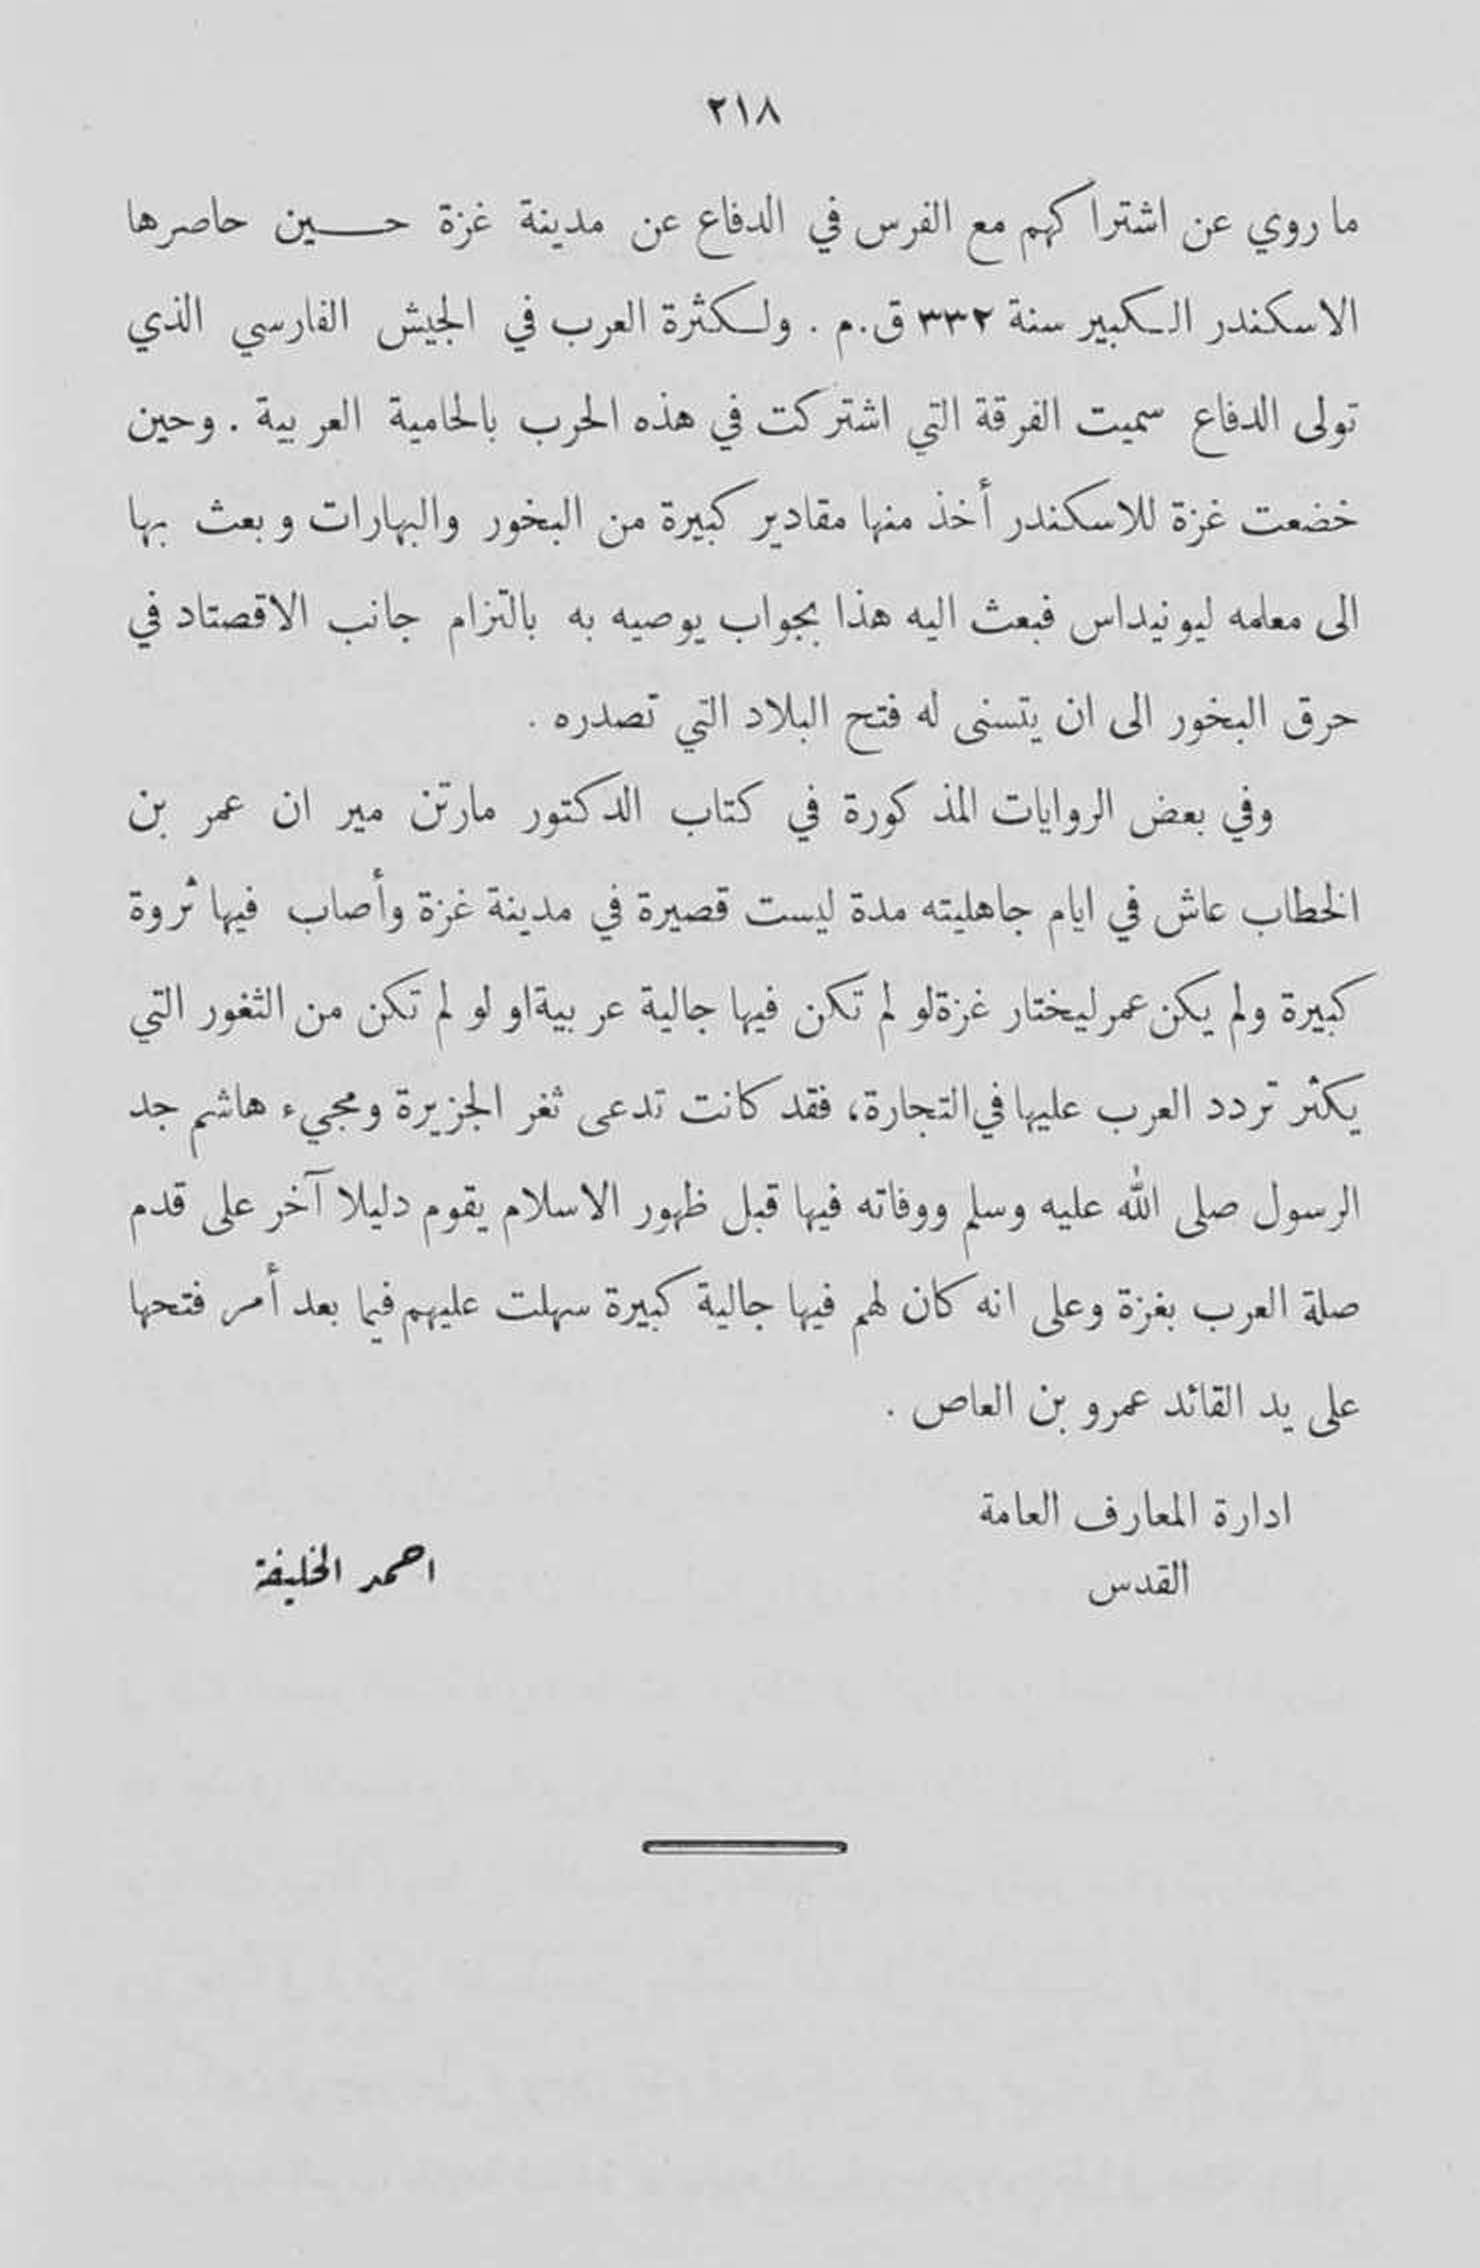 ٢١٨
ما روي عن اشتراكهم مع الفرس في الدفاع عن مدينة غزة حين حاصرها
الاسكندر الكبير سنة ٣٣٢ ق.م . ولكثرة العرب في الجيش الفارسي الذي
تولى الدفاع سميت الفرقة التي اشتركت في هذه الحرب بالحامية العربية . وحين
خضعت غزة للاسكندر أخذ منها مقادير كبيرة من البخور والبهارات وبعث بها
الى معلمه ليونيداس فبعث اليه هذا بجواب يوصيه به بالتزام جانب الاقصتاد في
حرق البخور الى ان يتسنى له فتح البلاد التي تصدره .
وفي بعض الروايات المذكورة في كتاب الدكتور مارتن مير ان عمر بن
الخطاب عاش في ايام جاهليته مدة ليست قصيرة في مدينة غزة وأصاب فيها ثروة
كبيرة ولم يكن عمر ليختار غزة لو لم تكن فيها جالية عربية او لو لم تكن من الثغور التي
يكثر تردد العرب عليها في التجارة، فقد كانت تدعى ثغر الجزيرة ومجيء هاشم جد
الرسول صلى الله عليه وسلم ووفاته فيها قبل ظهور الاسلام يقوم دليلا آخر على قدم
صلة العرب بغزة وعلى انه كان لهم فيها جالية كبيرة سهلت عليهم فيما بعد أمر فتحها
على يد القائد عمرو بن العاص .
ادارة المعارف العامة
القدس
احمد الخليفة